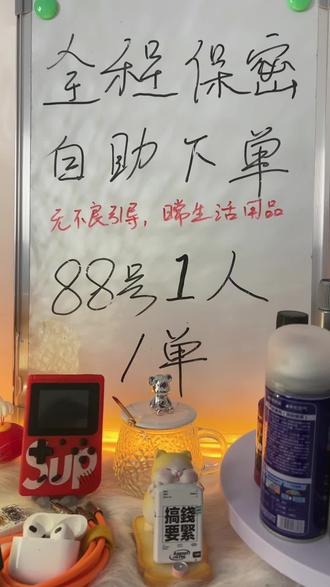 全程保密
自助下单
无不良引导，日常生活用品
88号1人
/单
SUP
搞錢
要緊